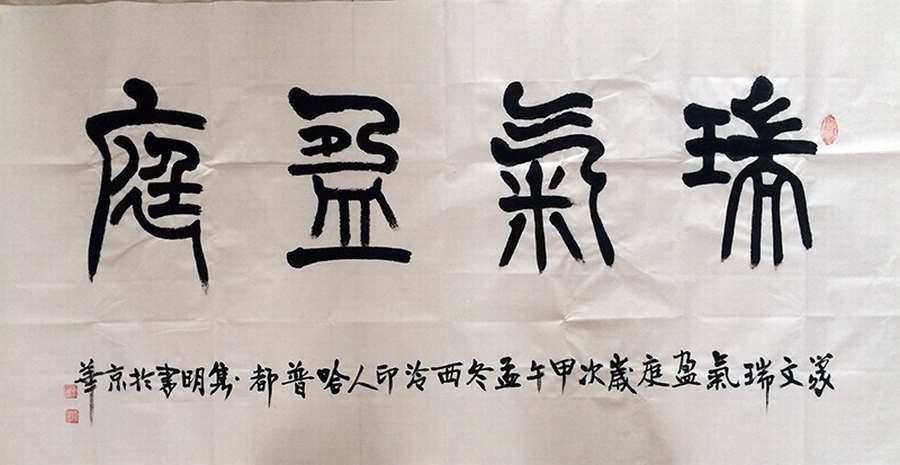 瑞氣盈庭
篆文瑞氣盈庭歲次甲午孟冬西泠印人哈普都·雋明書於京華